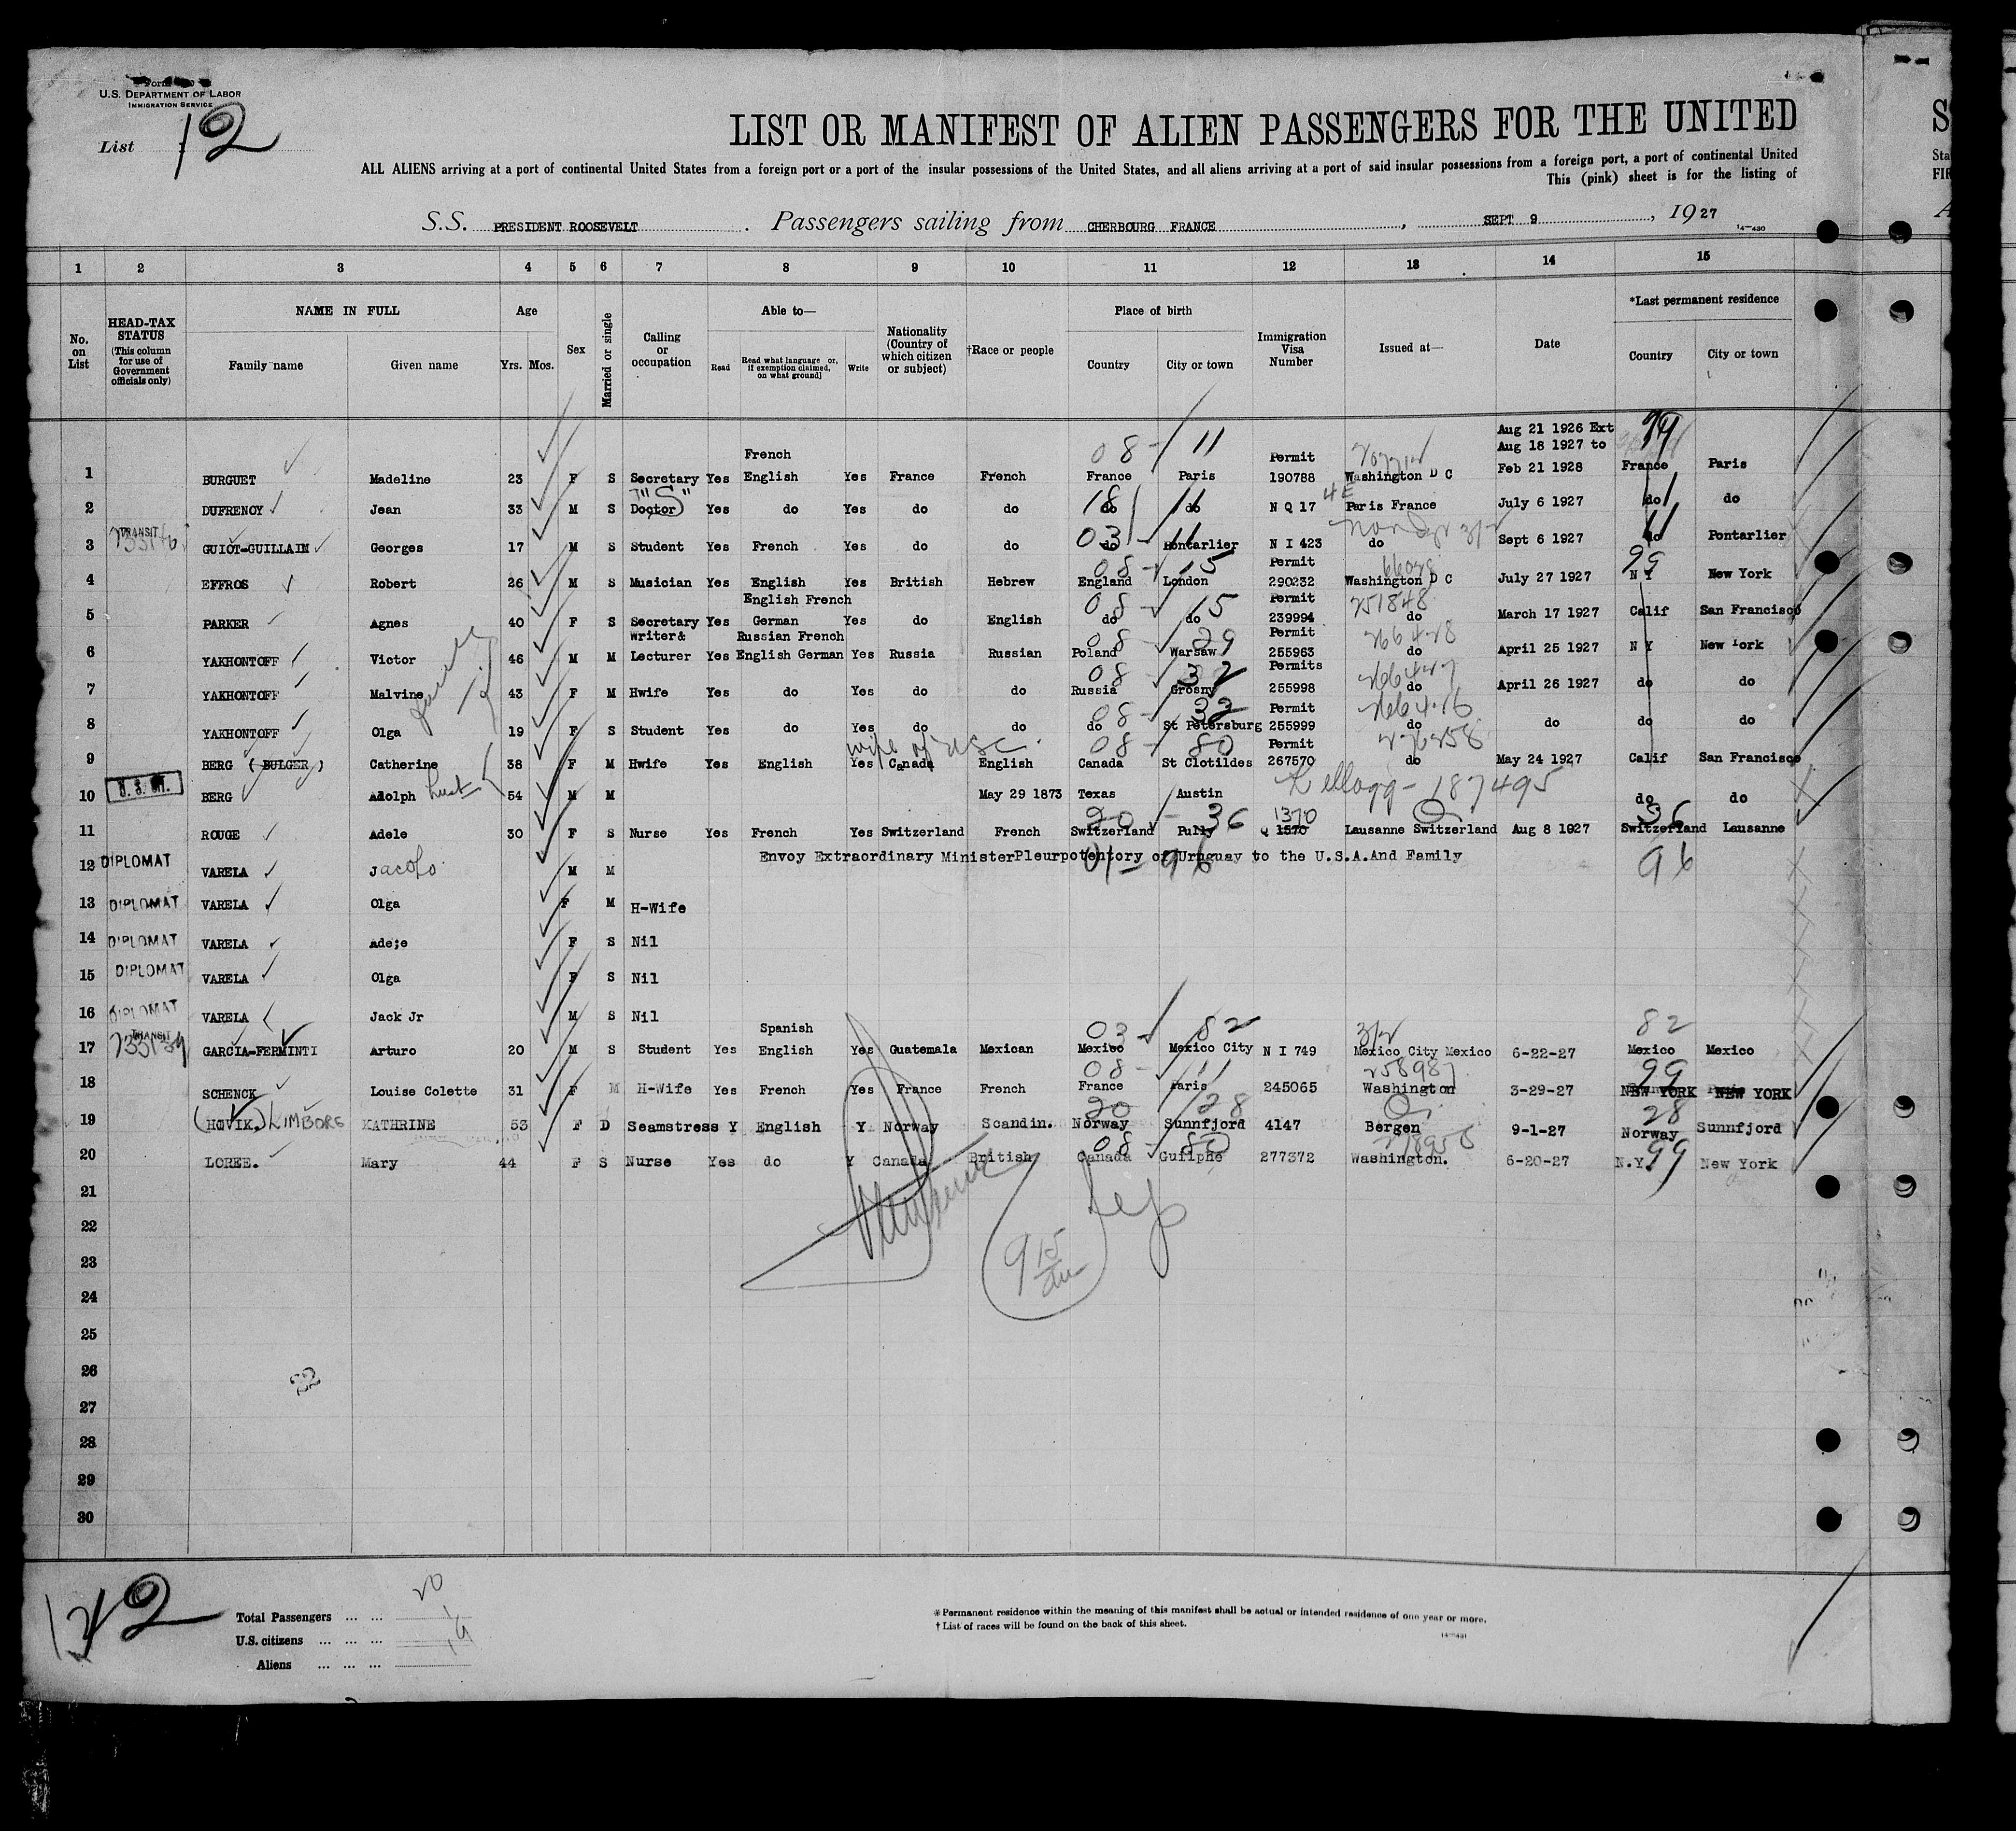 Form
U.S. DEPARTMENT OF LABOR
IMMIGRATION SERVICE
List 12
LIST OR MANIFEST OF ALIEN PASSENGERS FOR THE UNITED
ALL ALIENS arriving at a port of continental United States from a foreign port or a port of the insular possessions of the United States, and all aliens arriving at a port of said insular possessions from a foreign port, a port of continental United
This (pink) sheet is for the listing of
S.S. PRESIDENT ROOSEVELT . Passengers sailing from CHERBOURG FRANCE , SEPT 9 , 1927
14—430
1 2 3 4 5 6 7 8 9 10 11 12 13 14 15
No. on List HEAD-TAX STATUS (This column for use of Government officials only) NAME IN FULL Family name Given name Age Yrs. Mos. Sex Married or single Calling or occupation Able to— Read Read what language or, if exemption claimed, on what ground] Write Nationality (Country of which citizen or subject) †Race or people Place of birth Country City or town Immigration Visa Number Issued at— Date *Last permanent residence Country City or town
Aug 21 1926 Ext
French 08 - 11 Permit Aug 18 1927 to
1 BURGUET Madeline 23 F S Secretary Yes English Yes France French France Paris 190788 Washington D C Feb 21 1928 France Paris
2 DUFRENOY Jean 33 M S Doctor Yes do Yes do do do do N Q 17 Paris France July 6 1927 do do
TRANSIT
3 GUIOT-GUILLAIN Georges 17 M S Student Yes French Yes do do do Pontarlier N I 423 do Sept 6 1927 do Pontarlier
08 - 15 Permit 99
4 EFFROS Robert 26 M S Musician Yes English Yes British Hebrew England London 290232 Washington D C July 27 1927 N Y New York
English French 08 15 Permit 251848
5 PARKER Agnes 40 F S Secretary Yes German Yes do English do do 239994 do March 17 1927 Calif San Francisco
Writer& Russian French 08 29 Permit 266428
6 YAKHONTOFF Victor 46 M M Lecturer Yes English German Yes Russia Russian Poland Warsaw 255963 do April 25 1927 N Y New York
08 - 32 Permits
7 YAKHONTOFF Malvine 43 F M Hwife Yes do Yes do do Russia Grosny 255998 do April 26 1927 do do
08 - 32 Permit
8 YAKHONTOFF Olga 19 F S Student Yes do Yes do do do St Petersburg 255999 do do do do
wife of USC. 08 - 80 Permit
9 BERG (BULGER) Catherine 38 F M Hwife Yes English Yes Canada English Canada St Clotildes 267570 do May 24 1927 Calif San Francisco
10 BERG Adolph husb 54 M M May 29 1873 Texas Austin Kellogg - 187495 do do
20 - 36 1370
11 ROUGE Adele 30 F S Nurse Yes French Yes Switzerland French Switzerland Pully Q 1570 Lausanne Switzerland Aug 8 1927 Switzerland Lausanne
Envoy Extraordinary MinisterPleurpotentory of Uruguay to the U.S.A.And Family
12 DIPLOMAT VARELA Jacobo M M 01 - 96 96
13 DIPLOMAT VARELA Olga F M H-Wife
14 DIPLOMAT VARELA Ade;e F S Nil
15 DIPLOMAT VARELA Olga F S Nil
16 DIPLOMAT VARELA Jack Jr M S Nil
TRANSIT Spanish 03 - 82 82
17 GARCIA-FERMINTI Arturo 20 M S Student Yes English Yes Guatemala Mexican Mexico Mexico City N I 749 Mexico City Mexico 6-22-27 Mexico Mexico
08 - 11 258987 99
18 SCHENCK Louise Colette 31 F M H-Wife Yes French Yes France French France Paris 245065 Washington 3-29-27 NEW YORK NEW YORK
20 28 28
19 (HØVIK.) LIMBORG KATHRINE 53 F D Seamstress Y English Y Norway Scandin. Norway Sunnfjord 4147 Bergen 9-1-27 Norway Sunnfjord
08 - 80
20 LOREE. Mary 44 F S Nurse Yes do Y Canada British Canada Guilphe 277372 Washington. 6-20-27 N.Y. 99 New York
21
22
23
915
24
25
26
22
27
28
29
30
20
Total Passengers ... ...
U.S. citizens ... ... ...
Aliens ... ... ...
*Permanent residence within the meaning of this manifest shall be actual or intended residence of one year or more.
†List of races will be found on the back of this sheet.
14—431